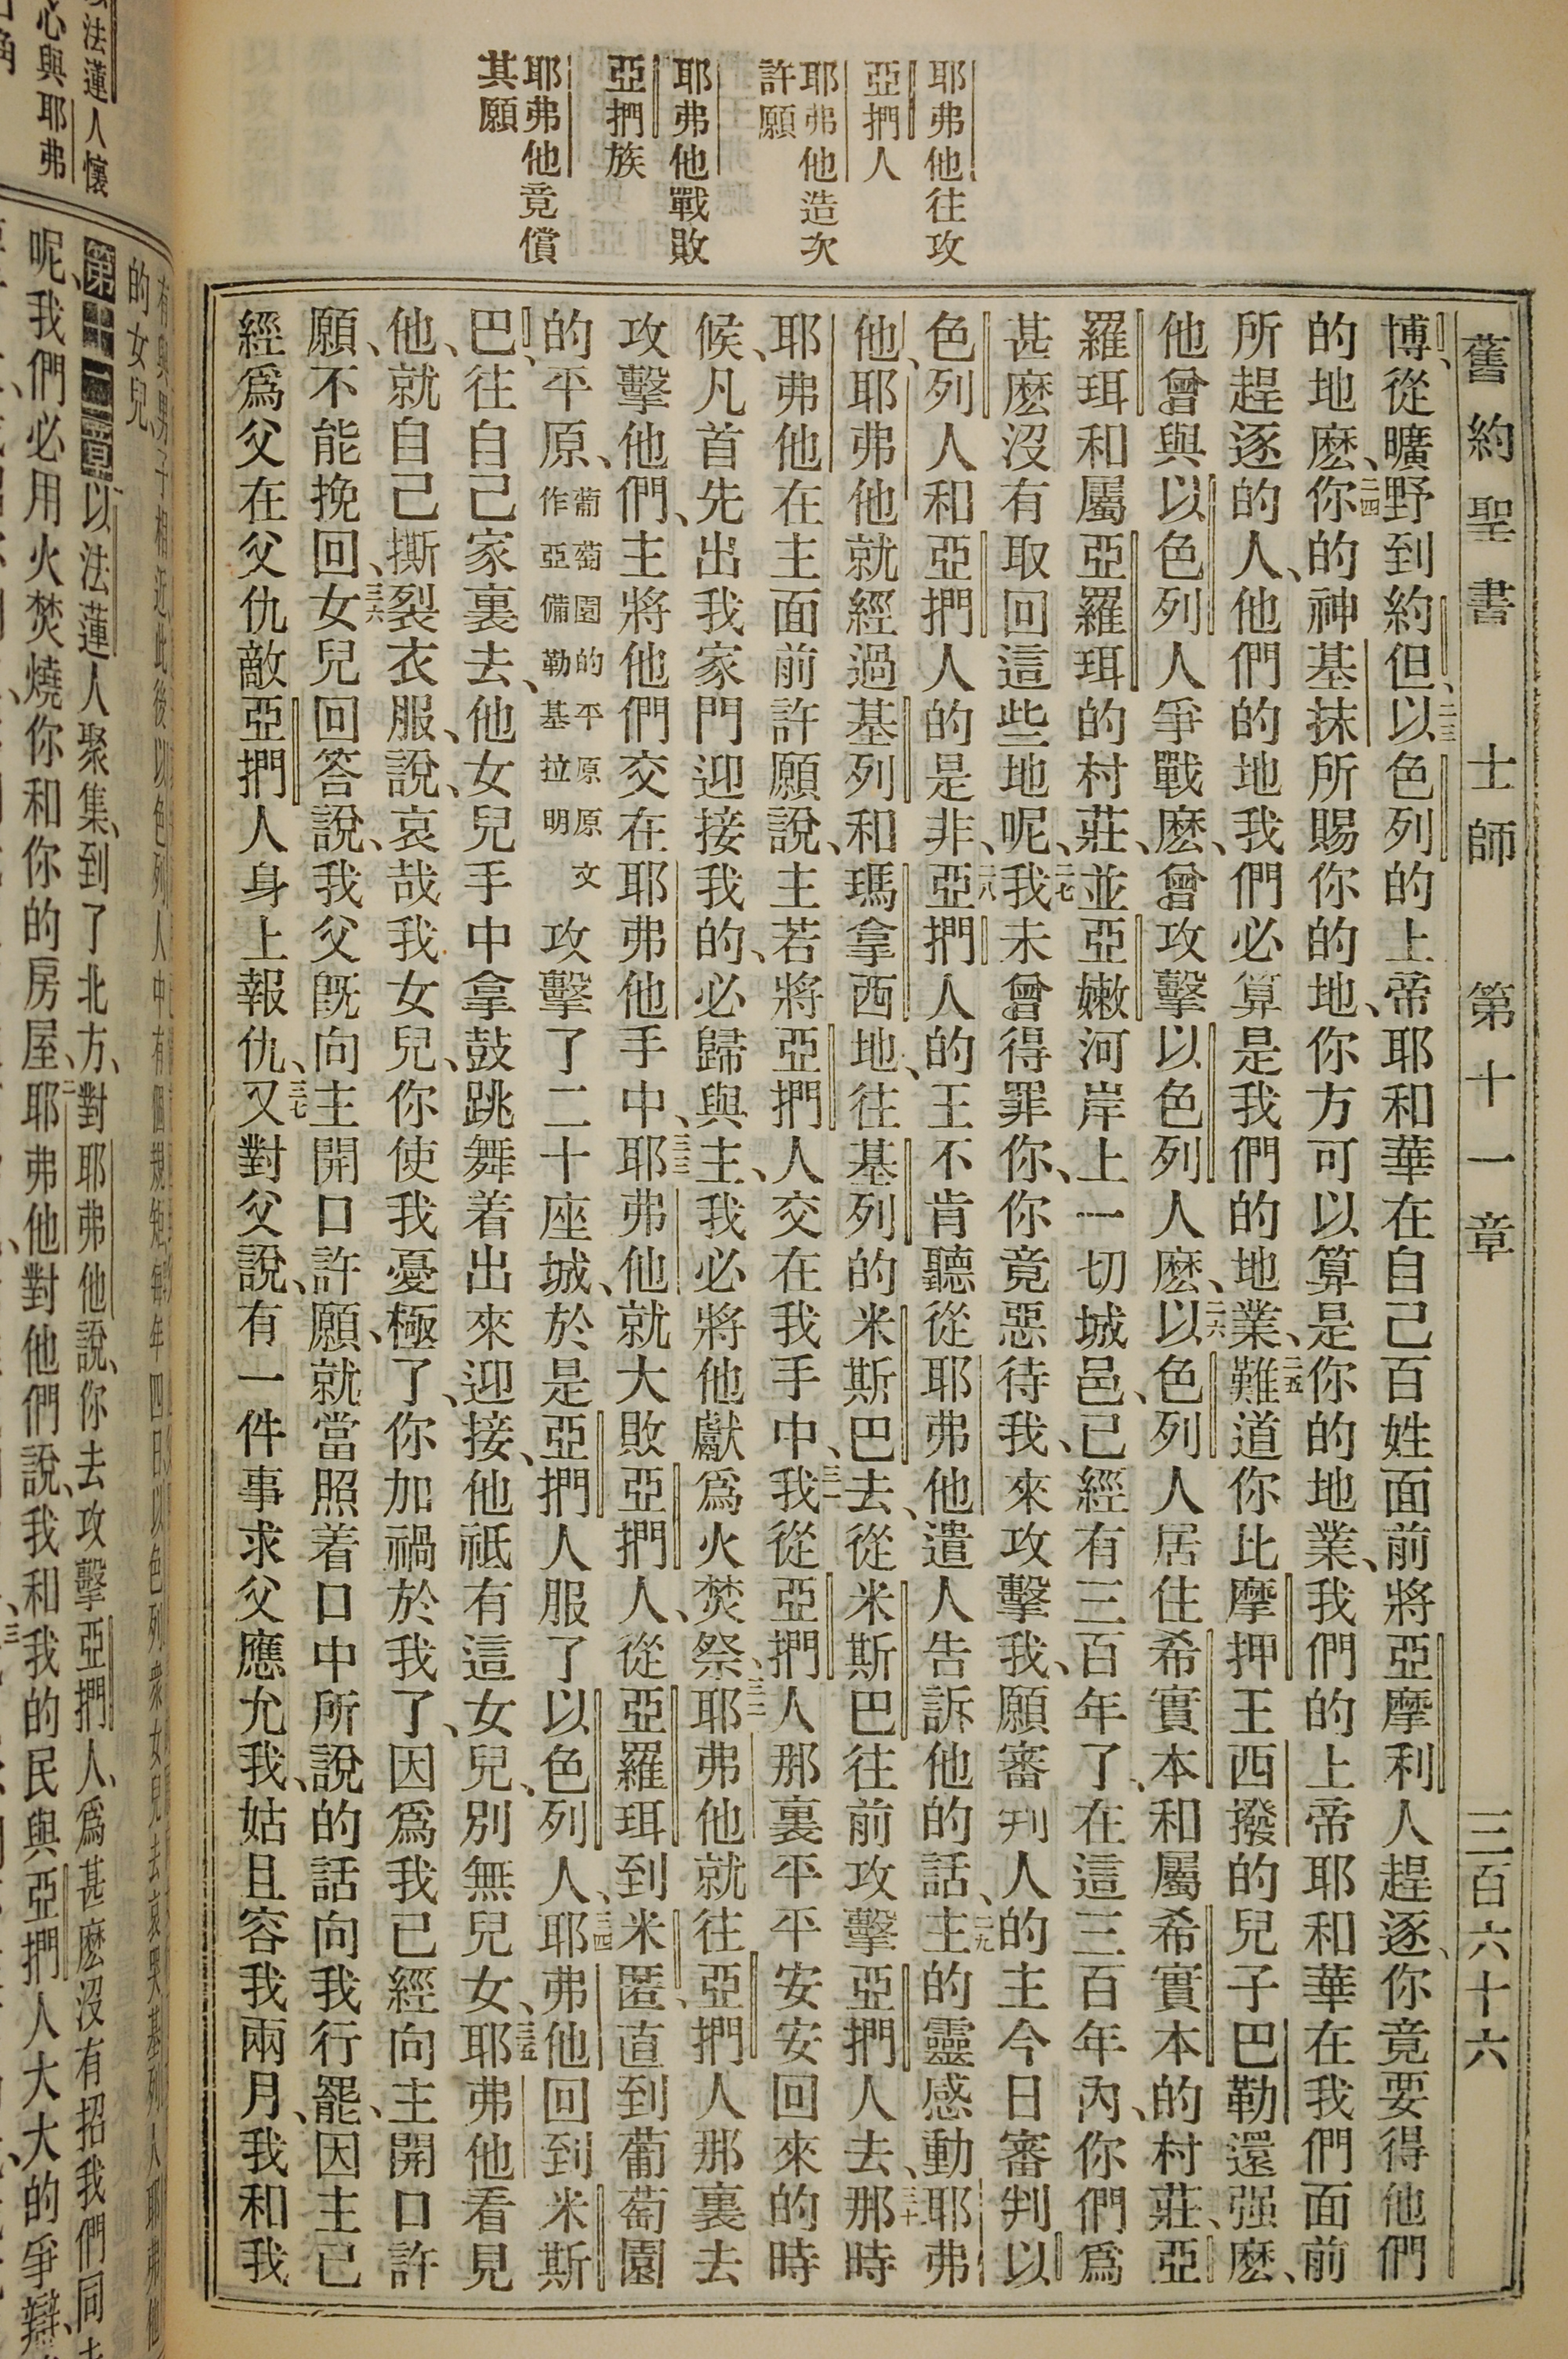 耶弗他往攻
亞捫人
耶弗他造次
許願
耶弗他戰敗
亞捫族
耶弗他竟償
其願
舊約聖書 士師 第十一章 三百六十六
博、從曠野到約但、二三以色列的上帝耶和華在自己百姓面前將亞摩利人趕逐、你竟要得他們
的地麽、二四你的神基抹所賜你的地、你方可以算是你的地業、我們的上帝耶和華在我們面前
所趕逐的人、他們的地我們必算是我們的地業、二五難道你比摩押王西撥的兒子巴勒還强麽、
他曾與以色列人爭戰麽、曾攻擊以色列人麽、二六以色列人居住希實本和屬希實本的村莊、亞
羅珥和屬亞羅珥的村莊、並亞嫩河岸上一切城邑、已經有三百年了、在這三百年內、你們爲
甚麽沒有取回這些地呢、二七我未曾得罪你、你竟惡待我、來攻擊我、願審判人的主今日審判以
色列人和亞捫人的是非、二八亞捫人的王不肯聽從耶弗他遣人告訴他的話、二九主的靈感動耶弗
他、耶弗他就經過基列和瑪拿西地、往基列的米斯巴去、從米斯巴往前攻擊亞捫人去、三十那時
耶弗他在主面前許願說、主若將亞捫人交在我手中、三一我從亞捫人那裏平平安安回來的時
候、凡首先出我家門迎接我的、必歸與主、我必將他獻爲火焚祭、三二耶弗他就往亞捫人那裏去
攻擊他們、主將他們交在耶弗他手中、三三耶弗他就大敗亞捫人、從亞羅珥到米匿、直到葡萄園
的平原、葡萄園的平原原文作亞備勒基拉明攻擊了二十座城、於是亞捫人服了以色列人、三四耶弗他回到米斯
巴、往自己家裏去、他女兒手中拿鼓跳舞着出來迎接、他祗有這女兒、別無兒女、三五耶弗他看見
他、就自己撕裂衣服、說、哀哉我女兒、你使我憂極了、你加禍於我了、因爲我已經向主開口許
願、不能挽回、三六女兒回答說、我父既向主開口許願、就當照着口中所說的話向我行罷、因主已
經爲父在父仇敵亞捫人身上報仇、三七又對父說、有一件事求父應允我、姑且容我兩月、我和我
有與男子相近此後以色列人中有個規矩每年四日以色列衆女兒去哀哭基列人耶弗他
的女兒、
第十二章以法蓮人聚集、到了北方、對耶弗他說、你去攻擊亞捫人、爲甚麽沒有招我們同去
呢、我們必用火焚燒你和你的房屋、二耶弗他對他們說、我和我的民與亞捫人大大的爭辯、
法蓮人懷
心與耶弗